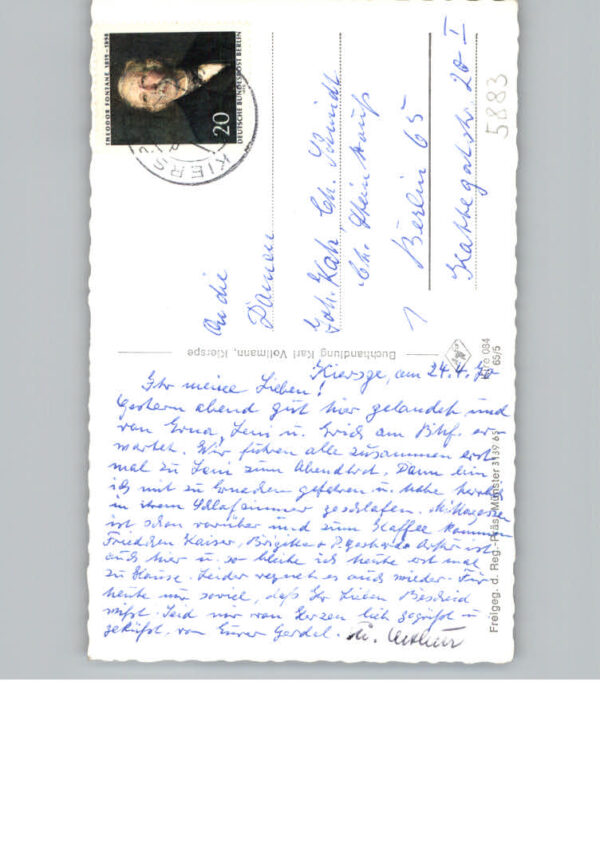 THEODOR FONTANE 1819-1898
20
DEUTSCHE BUNDESPOST BERLIN
KIERS
An die
Damen
Joh. Kath. Ch. Schmidt
Ch. Steinhauß
1 Berlin 65
Kattegatstr. 20 I
5883
Buchhandlung Karl Vollmann, Kierspe
084
65/5
Freigeg. d. Reg.-Präs. Münster 3139/65
Kierspe, am 24.4.70
Ihr meine Lieben!
Gestern abend gut hier gelandet und
von Erna, Leni u. Erich am Bhf. er-
wartet. Wir fuhren alle zusammen erst
mal zu Leni zum Abendbrot. Dann bin
ich mit zu gefahren u. habe herrlich
in ihrem Schlafzimmer geschlafen. Mittagessen
ist schon vorüber und zum Kaffee kommen
Friedchen Kaiser, Brigitte + ist
auch hier u. so bleibe ich heute erst mal
zu Hause. Leider regnet es auch wieder. Für
heute nur soviel, daß Ihr Lieben Bescheid
wißt. Seid nur von Herzen lieb gegrüßt u.
geküßt, von Eurer Gerdel. u.